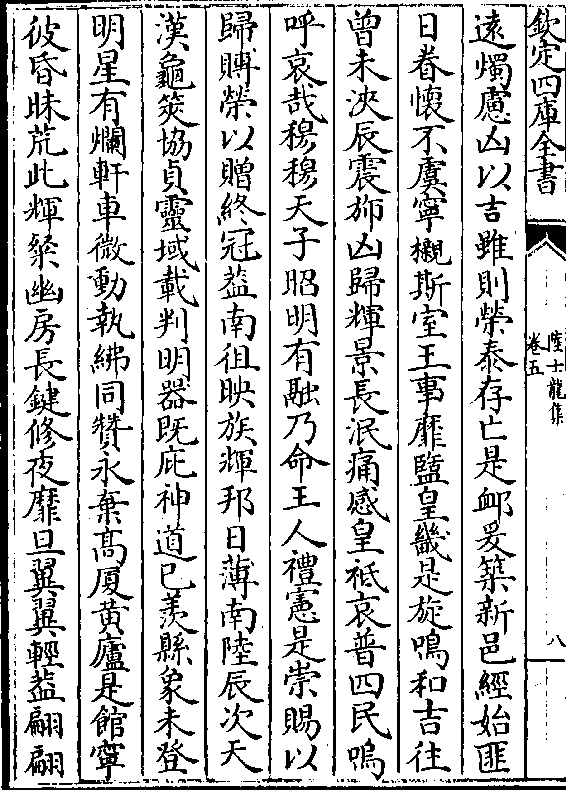 欽定四庫全書
陸士龍集
卷五
八
遠燭慮凶以吉雖則榮泰存亡是䘏爰築新邑經始匪
日眷懷不虞寧櫬斯室王事靡盬皇畿是旋鳴和吉往
曾未浹辰震斾凶歸輝景長泯痛感皇祗哀普四民嗚
呼哀哉穆穆天子昭明有融乃命王人禮憲是崇賜以
歸賻榮以贈終冠葢南徂映族輝邦日薄南陸辰次天
漢龜筴協貞靈域載判明器既庇神道已羨縣象未登
明星有爛軒車微動執紼同贊永棄髙厦黄廬是館寧
彼昏昧荒此輝粲幽房長鍵修夜靡旦翼翼輕葢翩翩